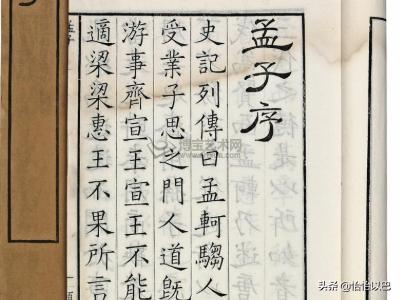 孟子序
史記列傳曰孟軻騶人
受業子思之門人道既
游事齊宣王宣王不能
適梁梁惠王不果所言
博宝艺术网
头条 @怡怡以巴